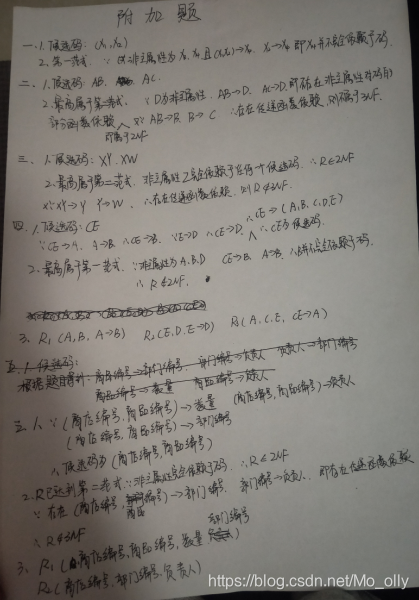 附加题
一、1. 候选码: (X₁,X₂)
2. 第一范式. ∵ 非主属性为 X₃, X₄ 且 (X₁,X₂)→X₃ X₂→X₄ 即 X₄ 并不完全依赖于码.
二、1. 候选码: AB, AC.
2. 最高属于第一范式. ∵ D为非主属性. AB→D. AC→D, 即存在非主属性对码的
部分函数依赖 又∵ AB→B B→C ∴存在传递函数依赖, 则不属于3NF.
即属于2NF
三、1. 候选码: XY, XW
2. 最高属于第二范式. 非主属性Z完全依赖于任何一个候选码. ∴ R∈2NF
又∵ XY→Y Y→W ∴存在传递函数依赖, 则 R∉3NF.
四、1. 候选码: CE
∵ CE→A. A→B ∴ CE→B. ∵ E→D ∴ CE→D. ∴ CE→(A,B,C,D,E) ∴ CE为候选码.
2. 最高属于第一范式 ∵ 非主属性为 A.B.D CE→B. A→B ∴ B并不完全依赖于码.
∴ R∉2NF.
3. R₁ (A,B, A→B) R₂(E,D, E→D) R₃(A,C,E, CE→A)
五、1. 候选码:
根据题目得到: 商品编号→部门编号. 部门编号→负责人 负责人→部门编号
商品编号→数量 商品编号→负责人
三、1. ∵ (商店编号,商品编号)→数量 (商店编号,商品编号)→负责人
(商店编号,商品编号)→部门编号
∴ 候选码为 (商店编号,商品编号)
2. R已达到第二范式 ∵ 非主属性完全依赖于码. ∴ R∈2NF
∵ 存在 (商店编号, 商品编号)→部门编号. 部门编号→负责人. 即存在传递函数依赖
∴ R∉3NF
3. R₁ (商店编号,商品编号,数量 部门编号)
R₂ (商店编号,部门编号,负责人)
https://blog.csdn.net/Mo_olly